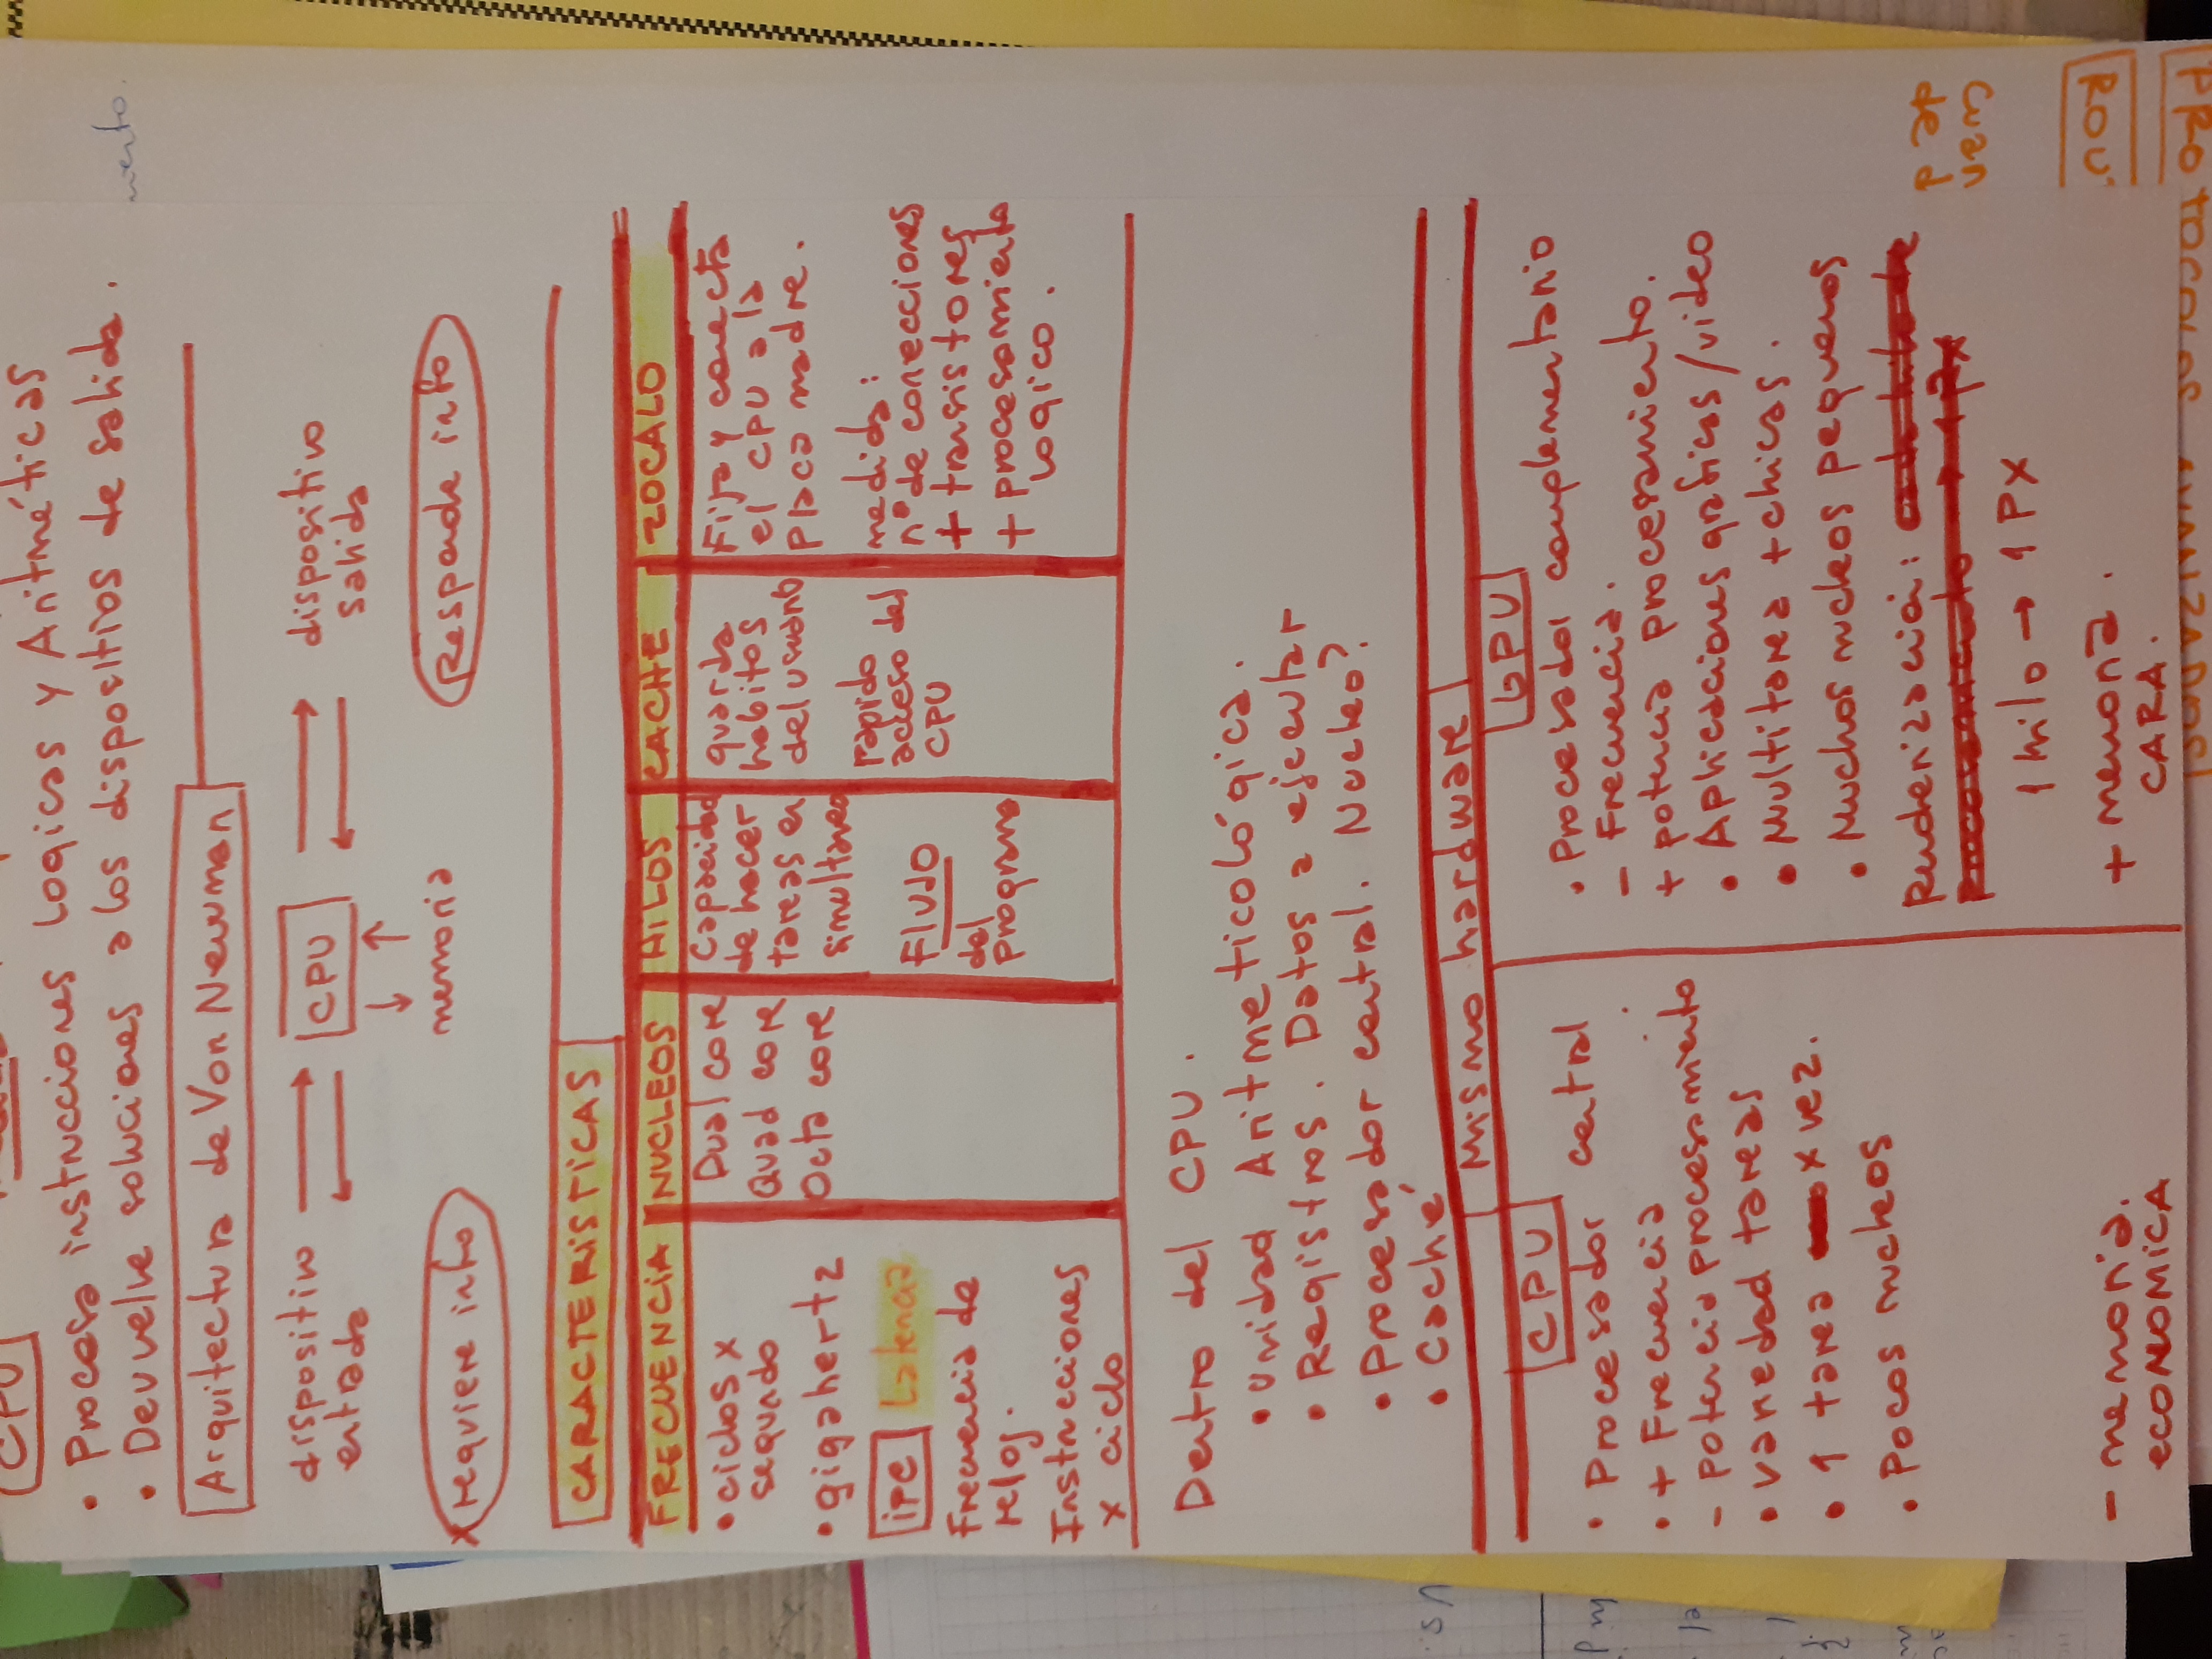 CPU
• Procesa instrucciones Logicas y Aritméticas
• Devuelve soluciones a los dispositios de salida.
Arquitectura de Von Newman
dispositivo entrada
CPU
dispositivo salida
memoria
x requiere info
Responde info
CARACTERISTICAS
FRECUENCIA NUCLEOS HILOS CACHE ZOCALO
• ciclos x
segundo
• gigahertz
IPC Latencia
Frecuencia de
reloj.
Instrucciones
x ciclo
Dual core
Quad core
Octa core
Capacidad
de hacer
tareas en
simultaneo
Flujo
del
programa
guarda
habitos
del usuario
rapido
acceso del
CPU
Fija y conecta
el CPU a la
placa madre.
medida:
nº de conecciones
+ transistores
+ procesamiento
logico.
Dentro del CPU.
• Unidad Aritmeticológica.
• Registros. Datos a ejecutar
• Procesador central. Nucleo?
• Caché
Mismo hardware
CPU
• Procesador central
• + Frecuencia
- potencia procesamiento
• variedad tareas
• 1 tarea x vez.
• Pocos nucleos
- memoria.
ECONOMICA
GPU
• Procesador complementario
- Frecuencia.
+ potencia procesamiento.
• Aplicaciones graficas/video
• Multitarea + chicas.
• Muchos nucleos pequenos
Renderización:
1 hilo → 1 PX
+ memoria.
CARA.
miento.
de
ROU
PROTOCOLOS